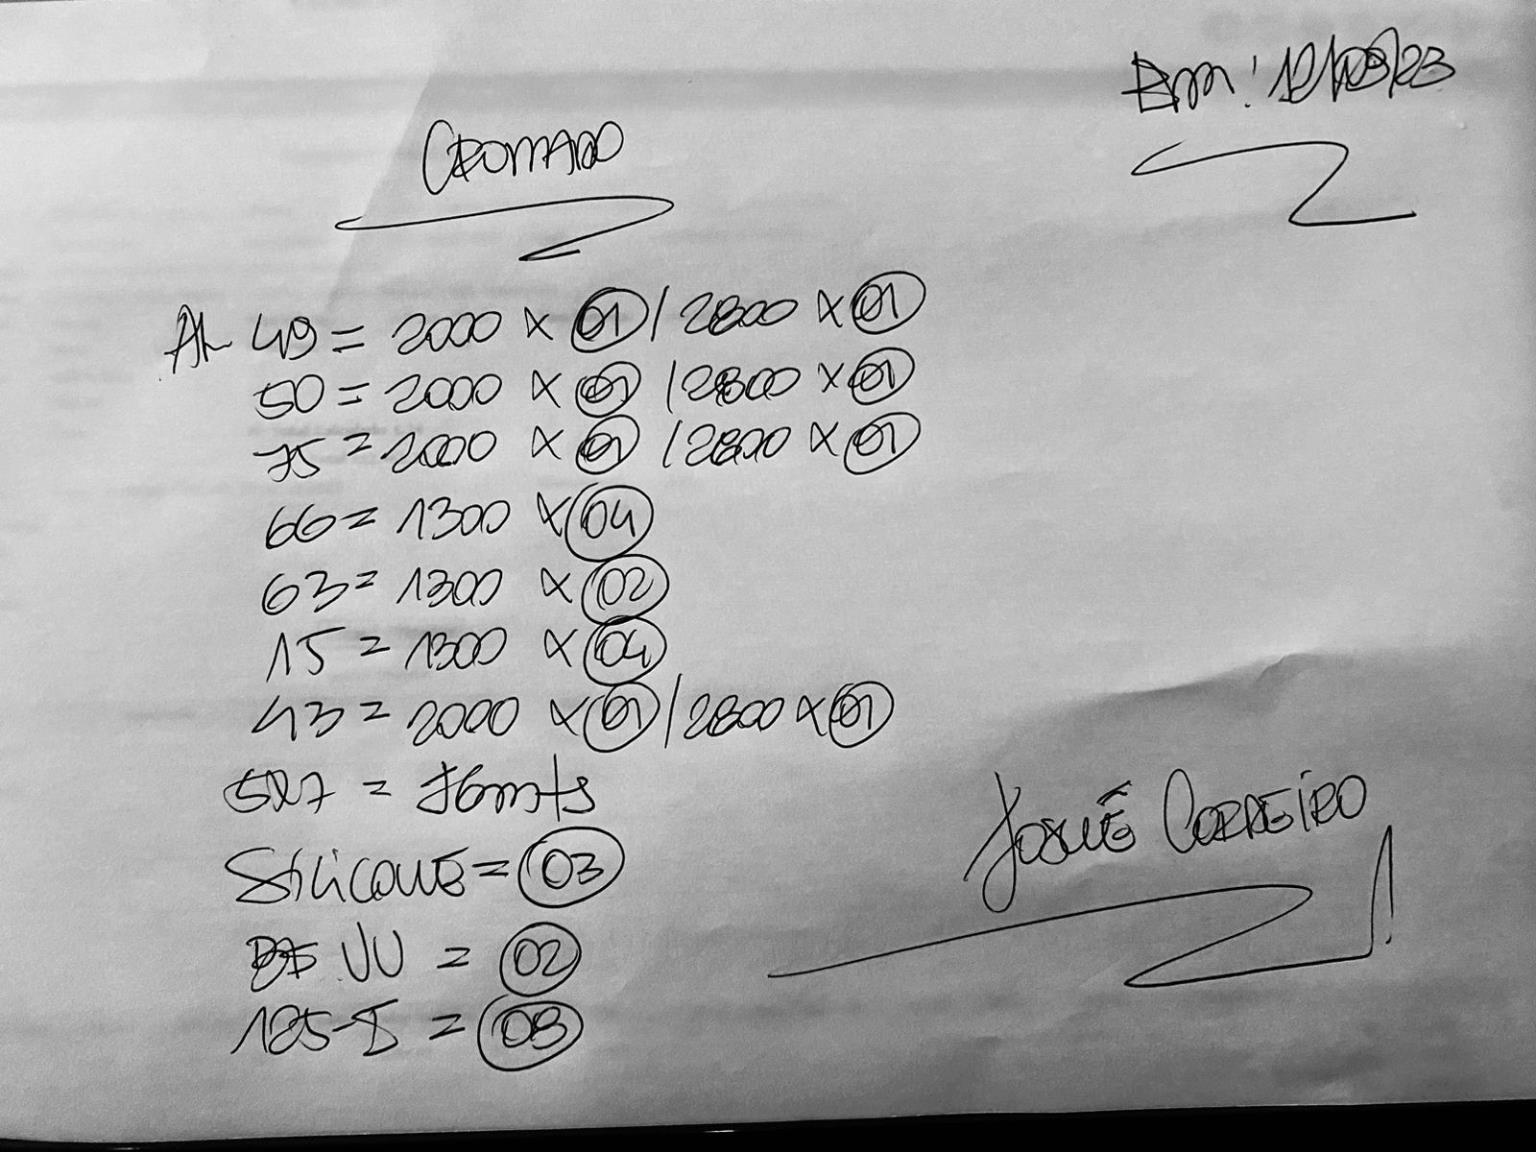 Em: 12/09/23
CROMADO
AL 49 = 2000 x 01 / 2800 x 01
50 = 2000 x 01 / 2800 x 01
75 = 2000 x 01 / 2800 x 01
66 = 1300 x 04
63 = 1300 x 02
15 = 1300 x 04
43 = 2000 x 01 / 2800 x 01
527 = 76mts
SiLiCONE = 03
= 02
125-8 = 03
JOSUÉ CORREiRO